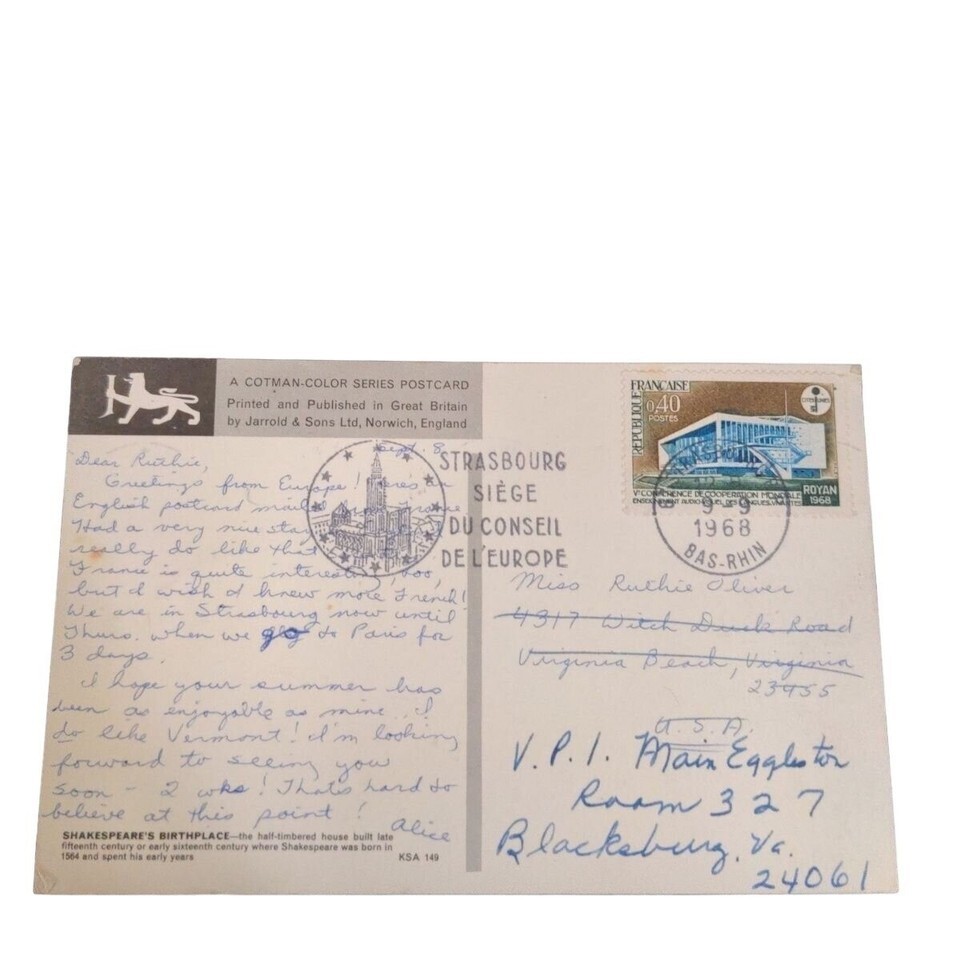 A COTMAN-COLOR SERIES POSTCARD
Printed and Published in Great Britain
by Jarrold & Sons Ltd, Norwich, England
Sept. 8
Dear Ruthie,
Greetings from Europe! Here's an
English postcard mailed from
Had a very nice stay
really do like that
France is quite interesting, too,
but I wish I knew more French!
We are in Strasbourg now until
Thurs. when we go to Paris for
3 days.
I hope your summer has
been as enjoyable as mine. I
do like Vermont! I'm looking
forward to seeing you
soon - 2 wks! That's hard to
believe at this point!
Alice
SHAKESPEARE'S BIRTHPLACE—the half-timbered house built late
fifteenth century or early sixteenth century where Shakespeare was born in
1564 and spent his early years
KSA 149
STRASBOURG
SIÈGE
DU CONSEIL
DE L'EUROPE
RÉPUBLIQUE FRANÇAISE
0,40
POSTES
Ve CONFÉRENCE DE COOPÉRATION MONDIALE
ROYAN
1968
9-9
1968
BAS-RHIN
Miss Ruthie Oliver
4317 Witch Duck Road
Virginia Beach, Virginia
23455
U.S.A.
V.P.I. Main Eggleston
Room 327
Blacksburg, Va.
24061